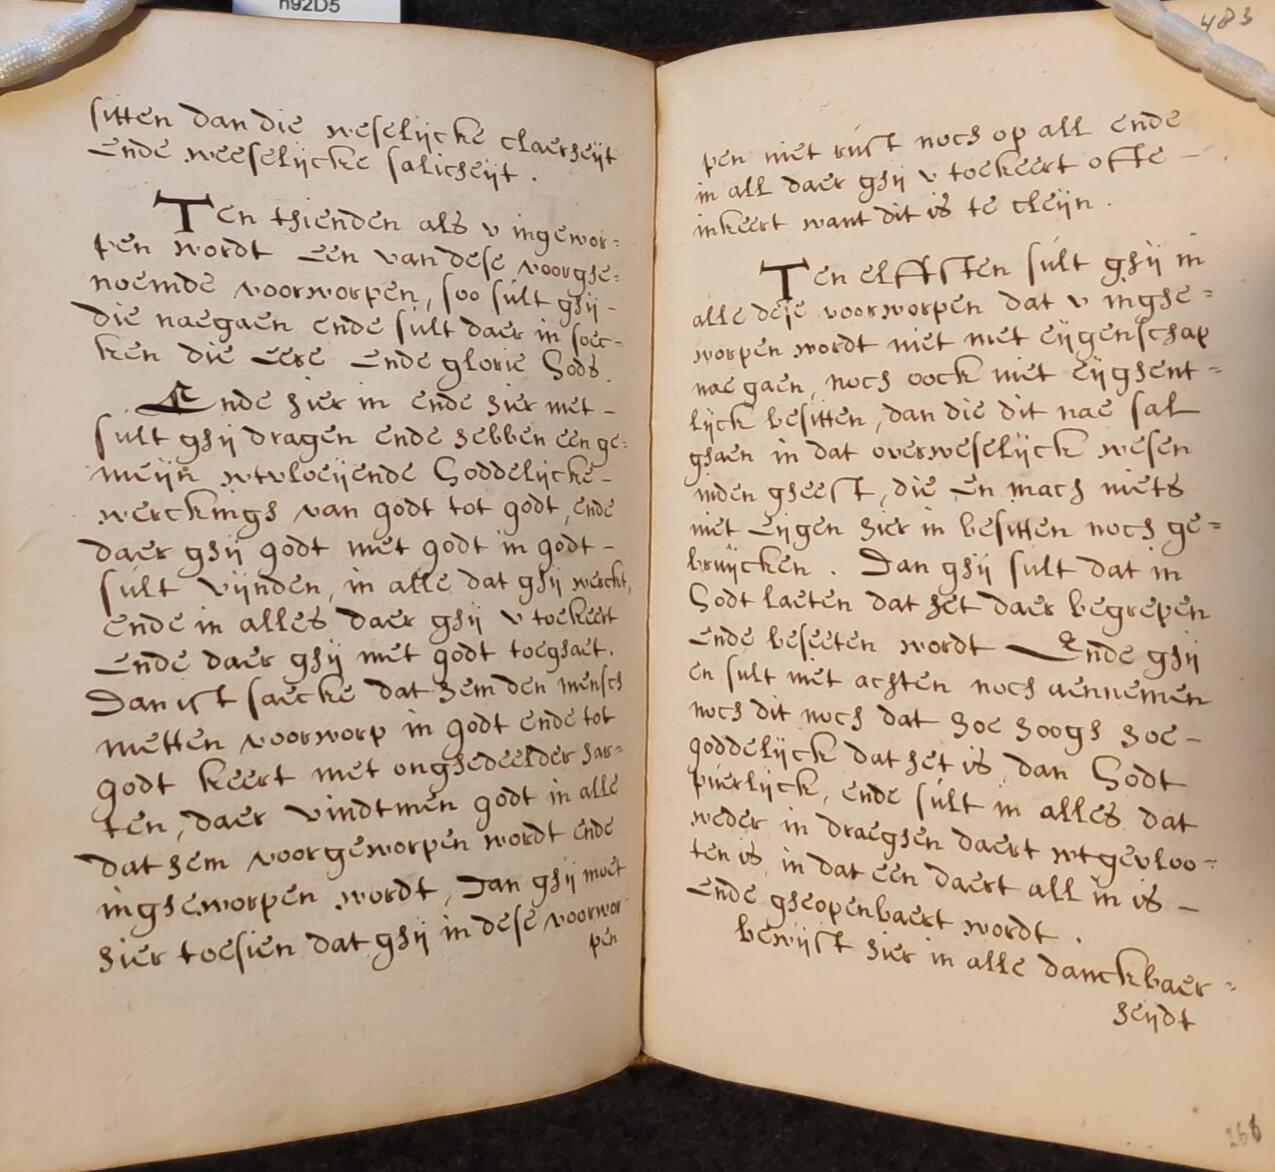 h92D5
sitten dan die weselijcke claerheijt
ende weeselijcke salicheijt .
Ten thienden als v ingewor=
pen wordt een van dese voorghe=
noemde voorworpen, soo sult ghij -
die naegaen ende sult daer in soec-
ken die eere ende glorie Gods.
Ende hier in ende hier met -
sult ghij dragen ende hebben een ge=
meijn wtvloeijende Goddelijcke -
werckingh van godt tot godt, ende
daer ghij godt met godt in godt -
sult vijnden, in alle dat ghij werckt,
ende in alles daer ghij v toekeert
ende daer ghij met godt toeghaet.
Dan ist saecke dat hem den mensch
metten voorworp in godt ende tot
godt keert met onghedeelder har=
ten, daer vindtmen godt in alle
dat hem voorgeworpen wordt ende
ingheworpen wordt, Dan ghij moet
hier toesien dat ghij in dese voorwor
pen
483
pen niet rust noch op all ende
in all daer ghij v toekeert ofte -
inkeert want dit is te cleijn .
Ten elffsten sult ghij in
alle dese voorworpen dat v inghe=
worpen wordt niet met eijgenschap
nae gaen, noch oock niet eijghent=
lijck besitten, dan die dit nae sal
ghaen in dat overweselijck wesen
inden gheest, die en mach niets
met eijgen hier in besitten noch ge=
bruijcken . Dan ghij sult dat in
Godt laeten dat het daer begrepen
ende beseeten wordt Ende ghij
en sult niet achten noch aennemen
noch dit noch dat hoe hoogh hoe -
goddelijck dat het is, dan Godt
puerlijck, ende sult in alles dat
weder in draeghen daert wtgevloo=
ten is, in dat een daert all in is -
ende gheopenbaert wordt .
bewijst hier in alle danckbaer=
heijdt
266